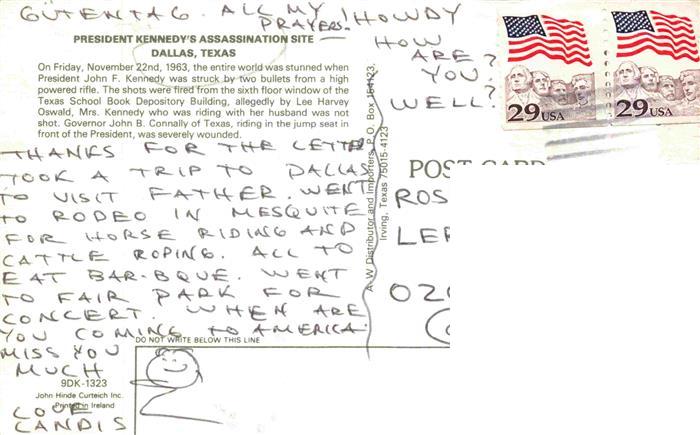 GÜTENTAG. ALL MY
PRAYERS! HOWDY
HOW
ARE?
YOU?
WELL?
PRESIDENT KENNEDY'S ASSASSINATION SITE
DALLAS, TEXAS
On Friday, November 22nd, 1963, the entire world was stunned when
President John F. Kennedy was struck by two bullets from a high
powered rifle. The shots were fired from the sixth floor window of the
Texas School Book Depository Building, allegedly by Lee Harvey
Oswald, Mrs. Kennedy who was riding with her husband was not
shot. Governor John B. Connally of Texas, riding in the jump seat in
front of the President, was severely wounded.
THANKS FOR THE LETTE
TOOK A TRIP TO DALLAS
TO VISIT FATHER. WENT
TO RODEO IN MESQUITE
FOR HORSE RIDING AND
CATTLE ROPING. ALL TO
EAT BAR-BQUE. WENT
TO FAIR PARK FOR
CONCERT. WHEN ARE
YOU COMING TO AMERICA.
MISS YOU
MUCH
DO NOT WRITE BELOW THIS LINE
9DK-1323
John Hinde Curteich Inc.
Printed in Ireland
LOVE
CANDIS
A-W Distributor and Importers, P.O. Box 154123,
Irving, Texas 75015-4123
29 USA
29 USA
POST CARD
ROS
LER
020